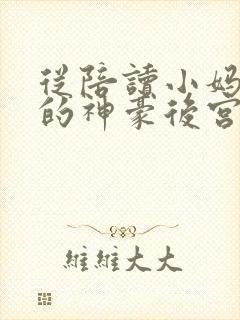 從陪讀小媽
的神豪後宮
維維大大